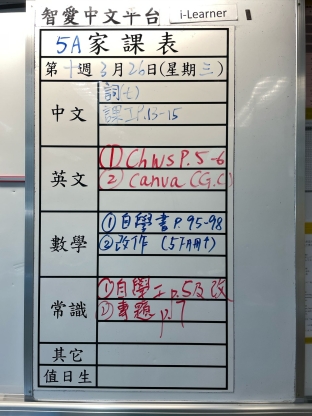 智愛中文平台 i-Learner
5A家課表
第十週3月26日(星期三)
中文
詞(七)
課工P.13-15
英文
① Ch WS P.5-6
② Canva (G.C)
數學
① 自學書 P.95-98
② 改作
常識
① 自學工 p.5及改
② 專題 p.7
其它
值日生